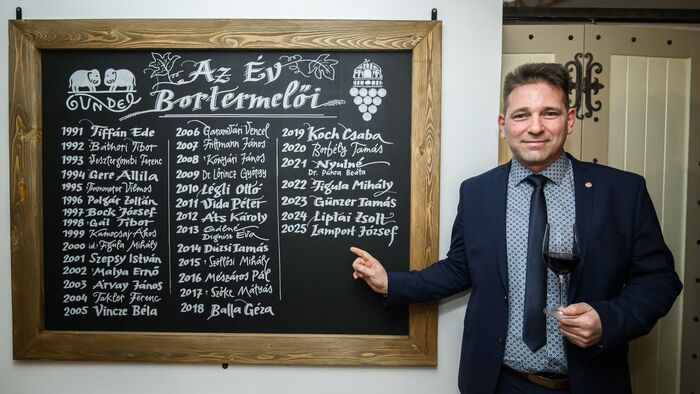 Az Év
Bortermelői
GUNDEL
1991 Tiffán Ede
1992 Báthori Tibor
1993 Vesztergombi Ferenc
1994 Gere Attila
1995 Thummerer Vilmos
1996 Polgár Zoltán
1997 Bock József
1998 Gál Tibor
1999 Kamocsay Ákos
2000 id. Figula Mihály
2001 Szepsy István
2002 Malya Ernő
2003 Árvay János
2004 Takler Ferenc
2005 Vincze Béla
2006 Garamvári Vencel
2007 Frittmann János
2008 Konyári János
2009 Dr. Lőrincz György
2010 Légli Ottó
2011 Vida Péter
2012 Áts Károly
2013 Gaálné
Dignisz Éva
2014 Dúzsi Tamás
2015 Szöllősi Mihály
2016 Mészáros Pál
2017 Szőke Mátyás
2018 Balla Géza
2019 Koch Csaba
2020 Borbély Tamás
2021 Nyulné
Dr. Pühra Beáta
2022 Figula Mihály
2023 Günzer Tamás
2024 Liptai Zsolt
2025 Lamport József